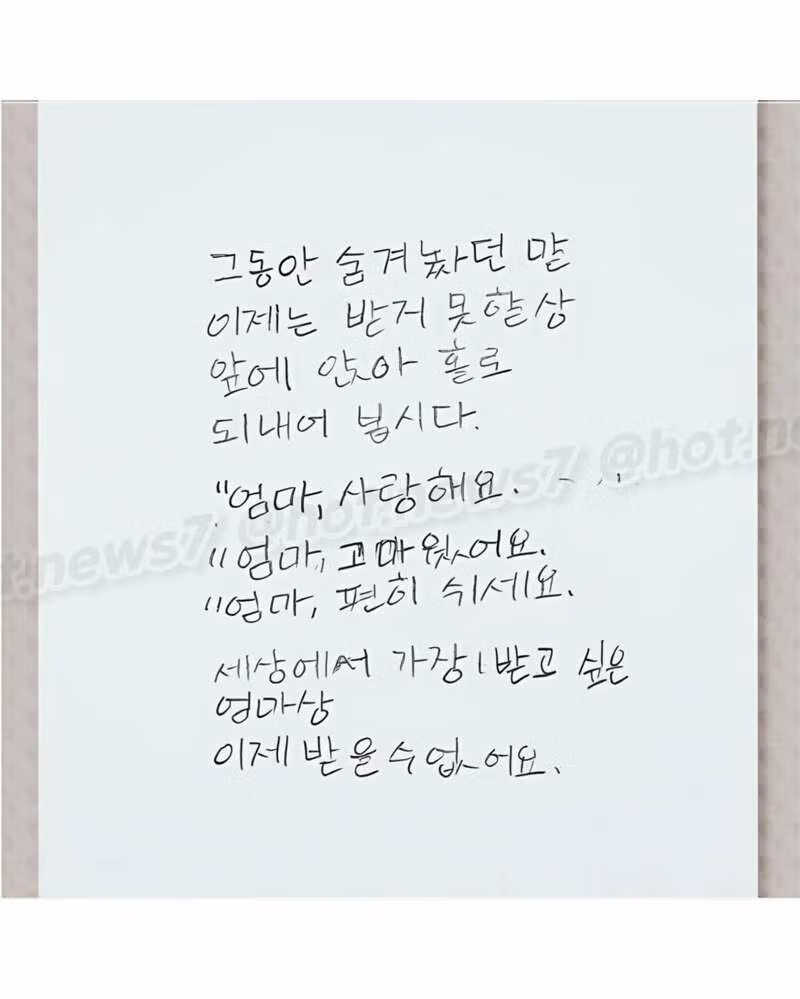 그동안 숨겨놨던 말
이제는 받거 못할상
앞에 앉아 홀로
되내어 봅시다.
"엄마, 사랑해요.
"엄마, 고마웠어요.
"엄마, 편히 쉬세요.
세상에서 가장 받고 싶은
엄마상
이제 받을수 없어요.
hot.news7 @hot.news7 @hot.n